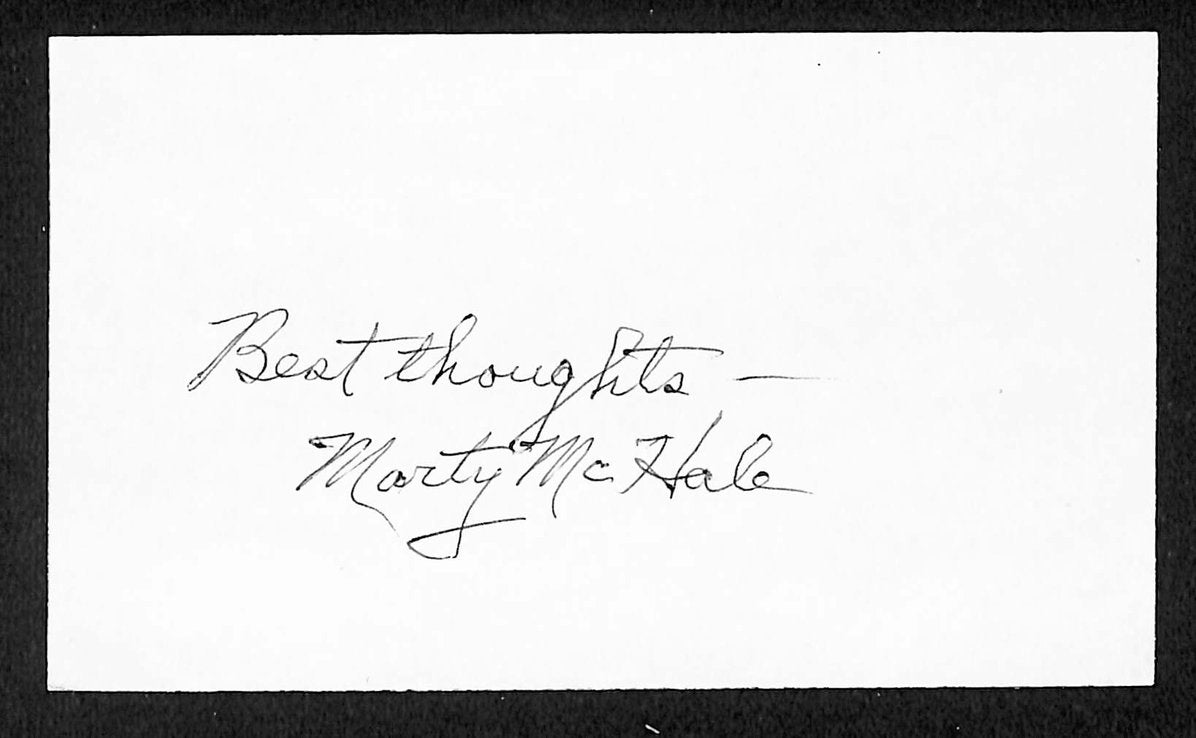 Best thoughts —
Marty McHale